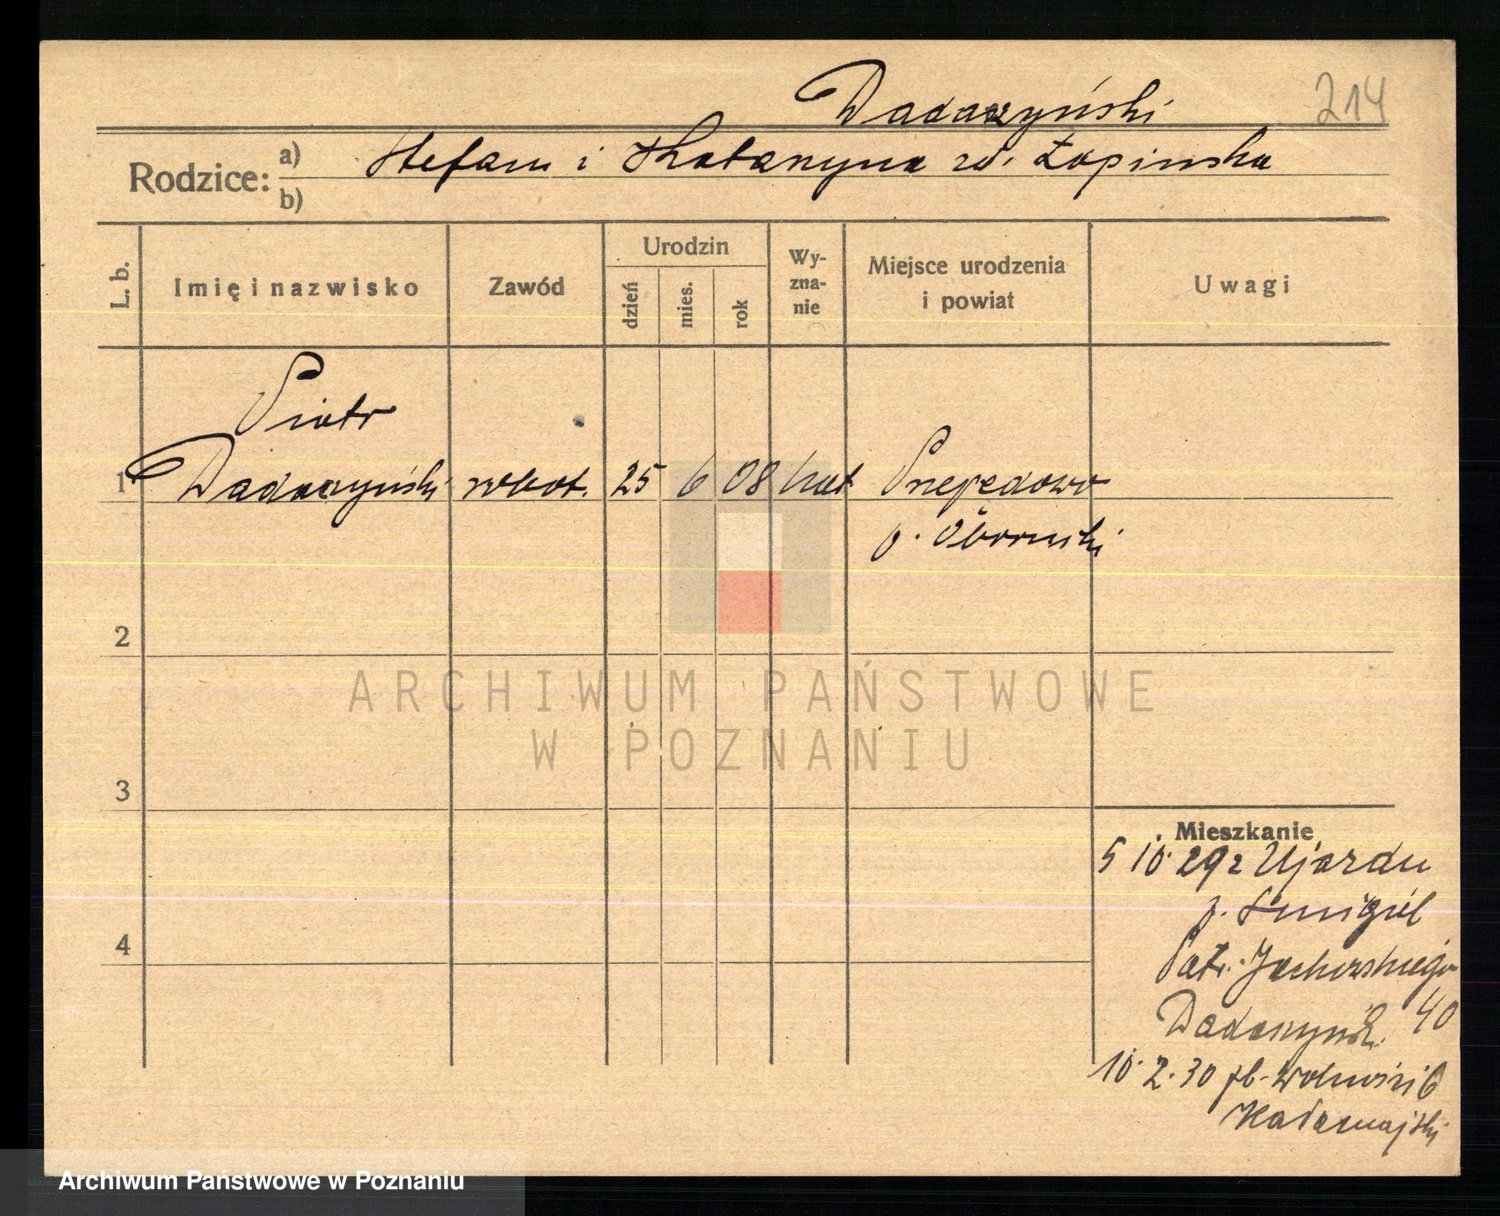 Dadaczyński
214
Rodzice:
a) Stefan i Katarzyna zd. Łopinska
b)
L. b.
Imię i nazwisko
Zawód
Urodzin
dzień
mies.
rok
Wy-
zna-
nie
Miejsce urodzenia
i powiat
Uwagi
Piotr
1 Dadaczyński robot. 25 6 08 kat
p. Obornicki
2
3
4
Mieszkanie
5 10. 29 z Ujazdu
p. Śmigiel
Patr. Jackowskiego
40
10. 2. 30 pl. Wolności 6
ARCHIWUM PAŃSTWOWE
W POZNANIU
Archiwum Państwowe w Poznaniu